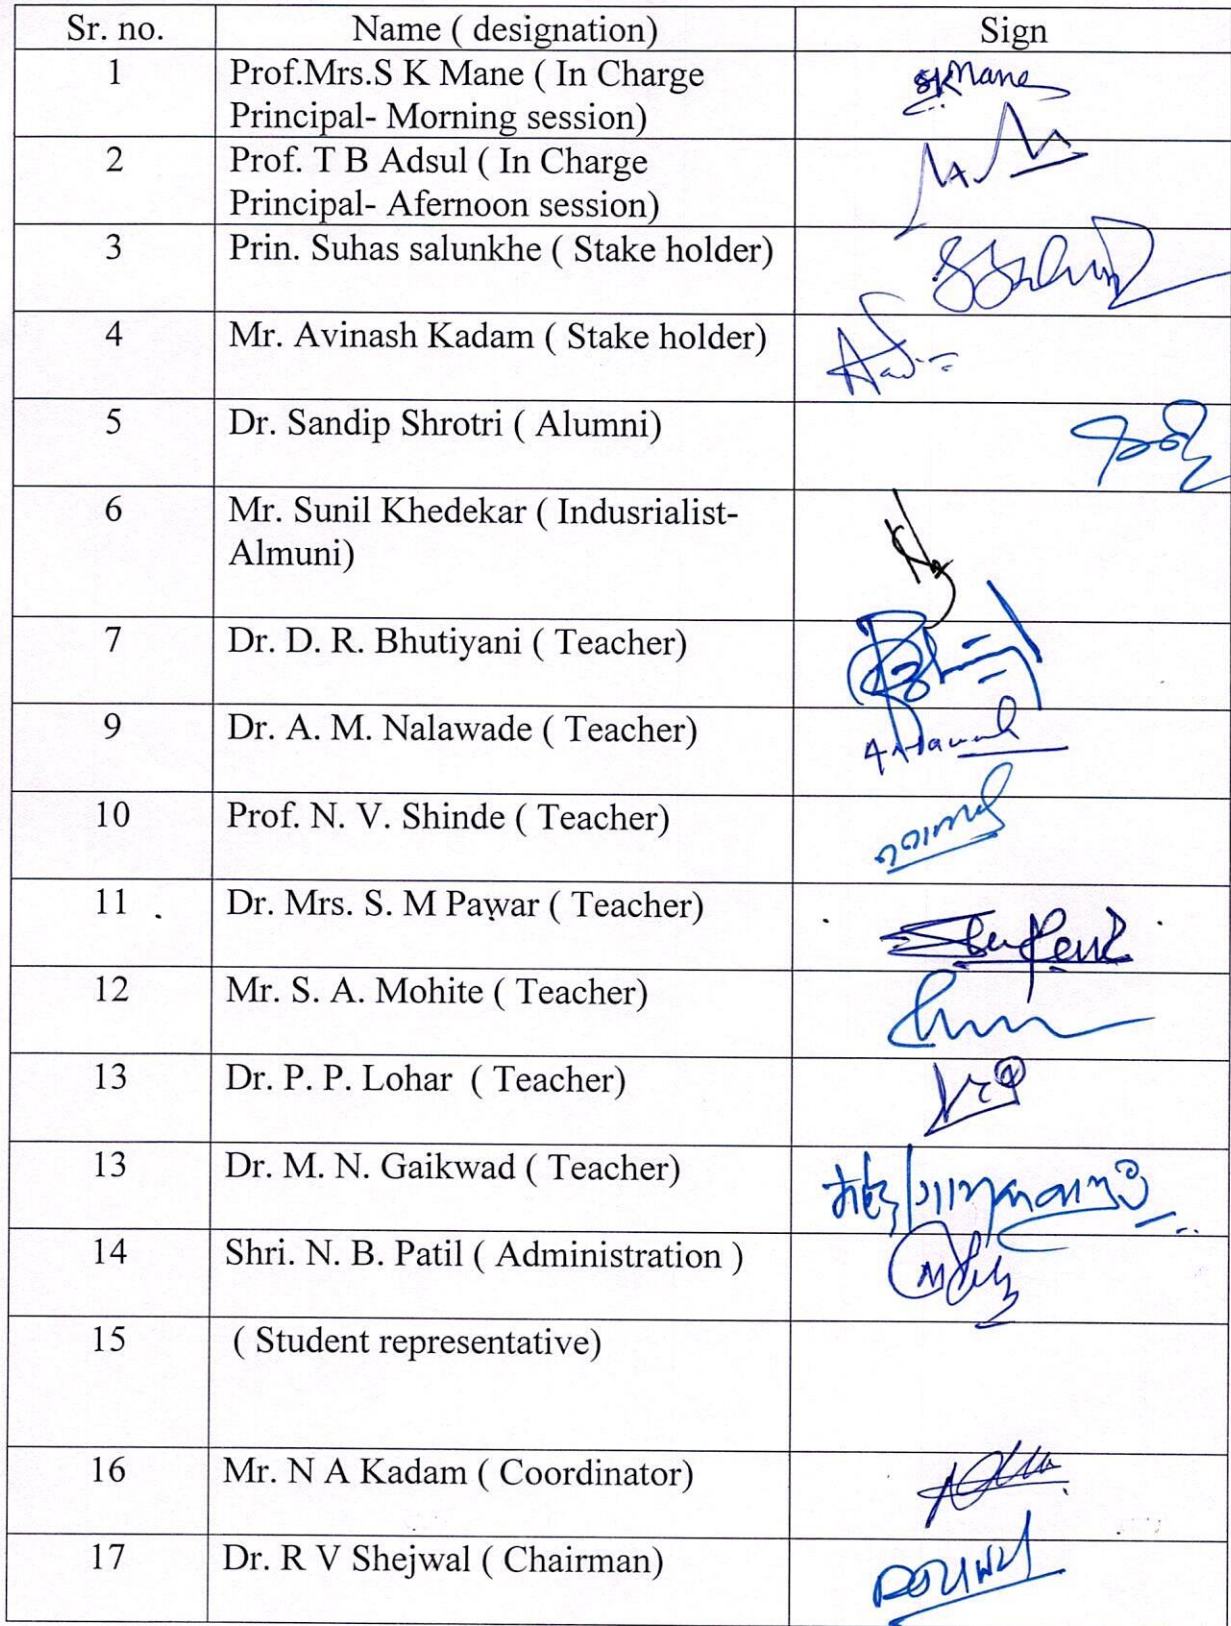 Sr. no. Name ( designation) Sign
1 Prof.Mrs.S K Mane ( In Charge SKMane
Principal- Morning session)
2 Prof. T B Adsul ( In Charge
Principal- Afernoon session)
3 Prin. Suhas salunkhe ( Stake holder)
4 Mr. Avinash Kadam ( Stake holder)
5 Dr. Sandip Shrotri ( Alumni)
6 Mr. Sunil Khedekar ( Indusrialist-
Almuni)
7 Dr. D. R. Bhutiyani ( Teacher)
9 Dr. A. M. Nalawade ( Teacher)
10 Prof. N. V. Shinde ( Teacher)
11 Dr. Mrs. S. M Pawar ( Teacher)
12 Mr. S. A. Mohite ( Teacher)
13 Dr. P. P. Lohar ( Teacher)
13 Dr. M. N. Gaikwad ( Teacher)
14 Shri. N. B. Patil ( Administration )
15 ( Student representative)
16 Mr. N A Kadam ( Coordinator)
17 Dr. R V Shejwal ( Chairman)